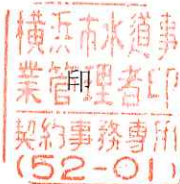 横浜市水道事
業管理者印
印
契約事務専用
(52-01)